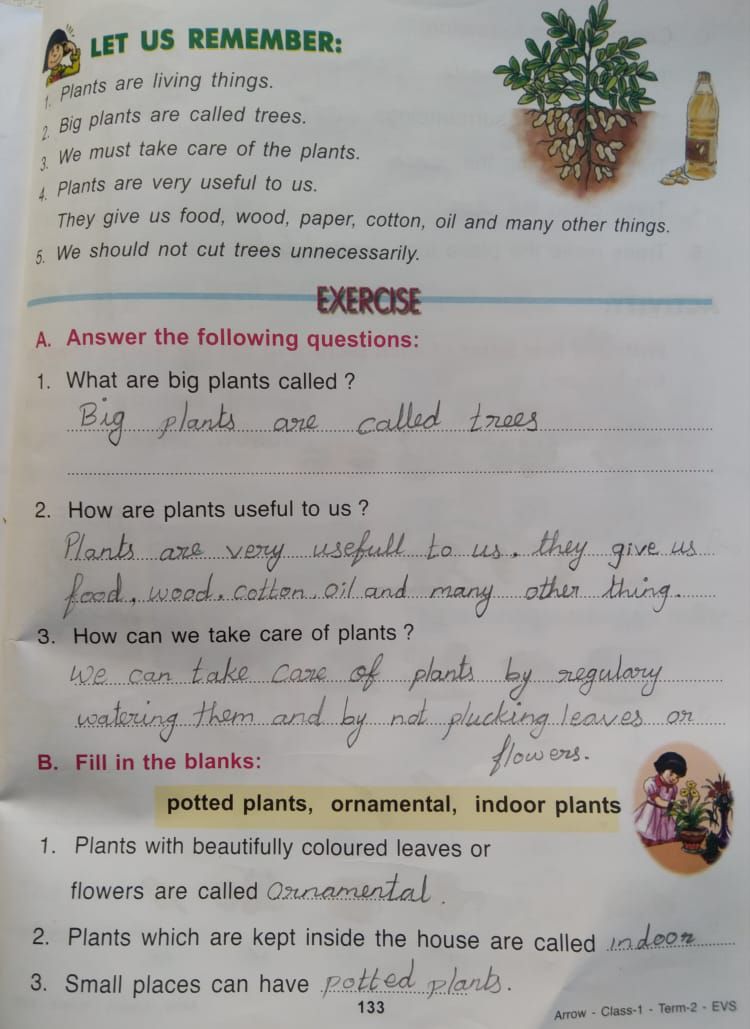 LET US REMEMBER:
1. Plants are living things.
2. Big plants are called trees.
3. We must take care of the plants.
4. Plants are very useful to us.
They give us food, wood, paper, cotton, oil and many other things.
5. We should not cut trees unnecessarily.
EXERCISE
A. Answer the following questions:
1. What are big plants called ?
Big plants are called trees
2. How are plants useful to us ?
Plants are very usefull to us. they give us
food, wood, cotton, oil and many other thing.
3. How can we take care of plants ?
We can take care of plants by regulary
watering them and by not plucking leaves or
flowers.
B. Fill in the blanks:
potted plants, ornamental, indoor plants
1. Plants with beautifully coloured leaves or
flowers are called Ornamental.
2. Plants which are kept inside the house are called indoor
3. Small places can have potted plants.
133
Arrow - Class-1 - Term-2 - EVS